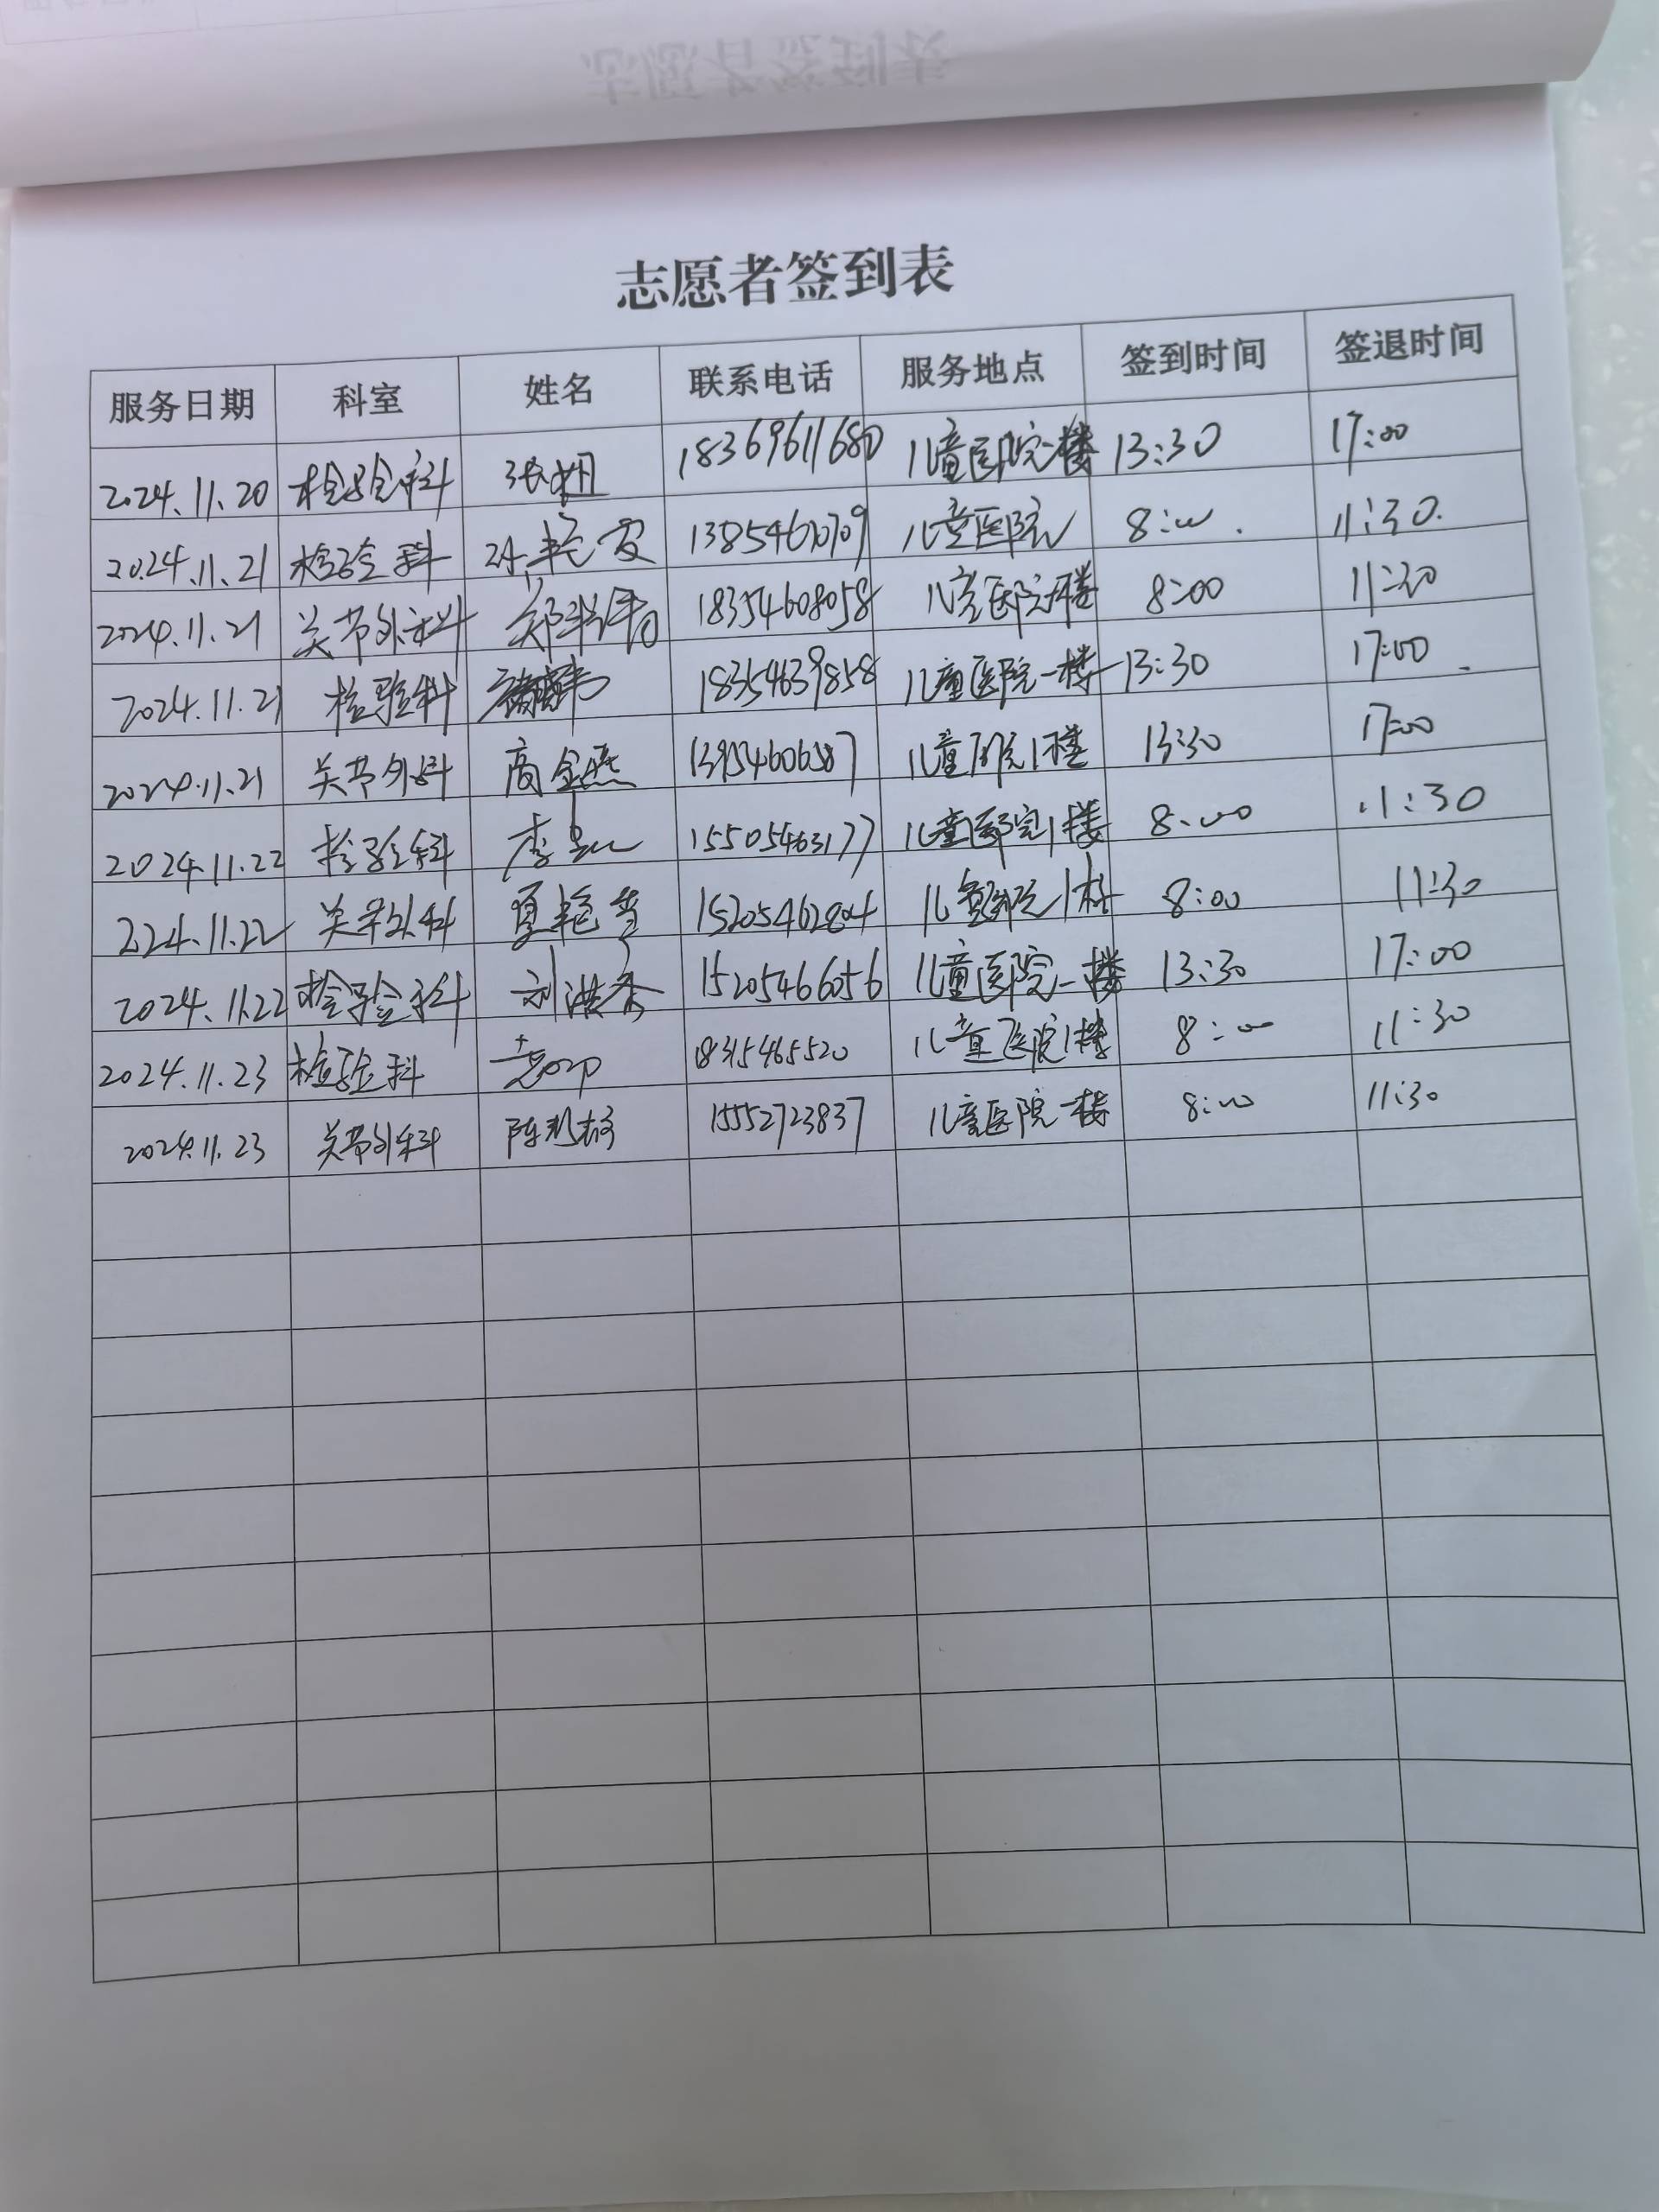 志愿者签到表
服务日期 科室 姓名 联系电话 服务地点 签到时间 签退时间
2024.11.20 检验科 张妞 18369611680 儿童医院一楼 13:30 17:00
2024.11.21 检验科 儿童医院 8:00 11:30
2024.11.21 关节外科 18354608058 儿童医院一楼 8:00 11:30
2024.11.21 检验科 18354639858 儿童医院一楼 13:30 17:00
2024.11.21 关节外科 商金燕 13954606587 儿童医院1楼 13:30 17:00
2024.11.22 检验科 李 15505463177 儿童医院1楼 8:00 11:30
2024.11.22 关节外科 夏艳 15205462804 儿童医院1楼 8:00 11:30
2024.11.22 检验科 刘洪秀 15205466056 儿童医院一楼 13:30 17:00
2024.11.23 检验科 18315465520 儿童医院1楼 8:00 11:30
2024.11.23 关节外科 陈 15552723837 儿童医院一楼 8:00 11:30